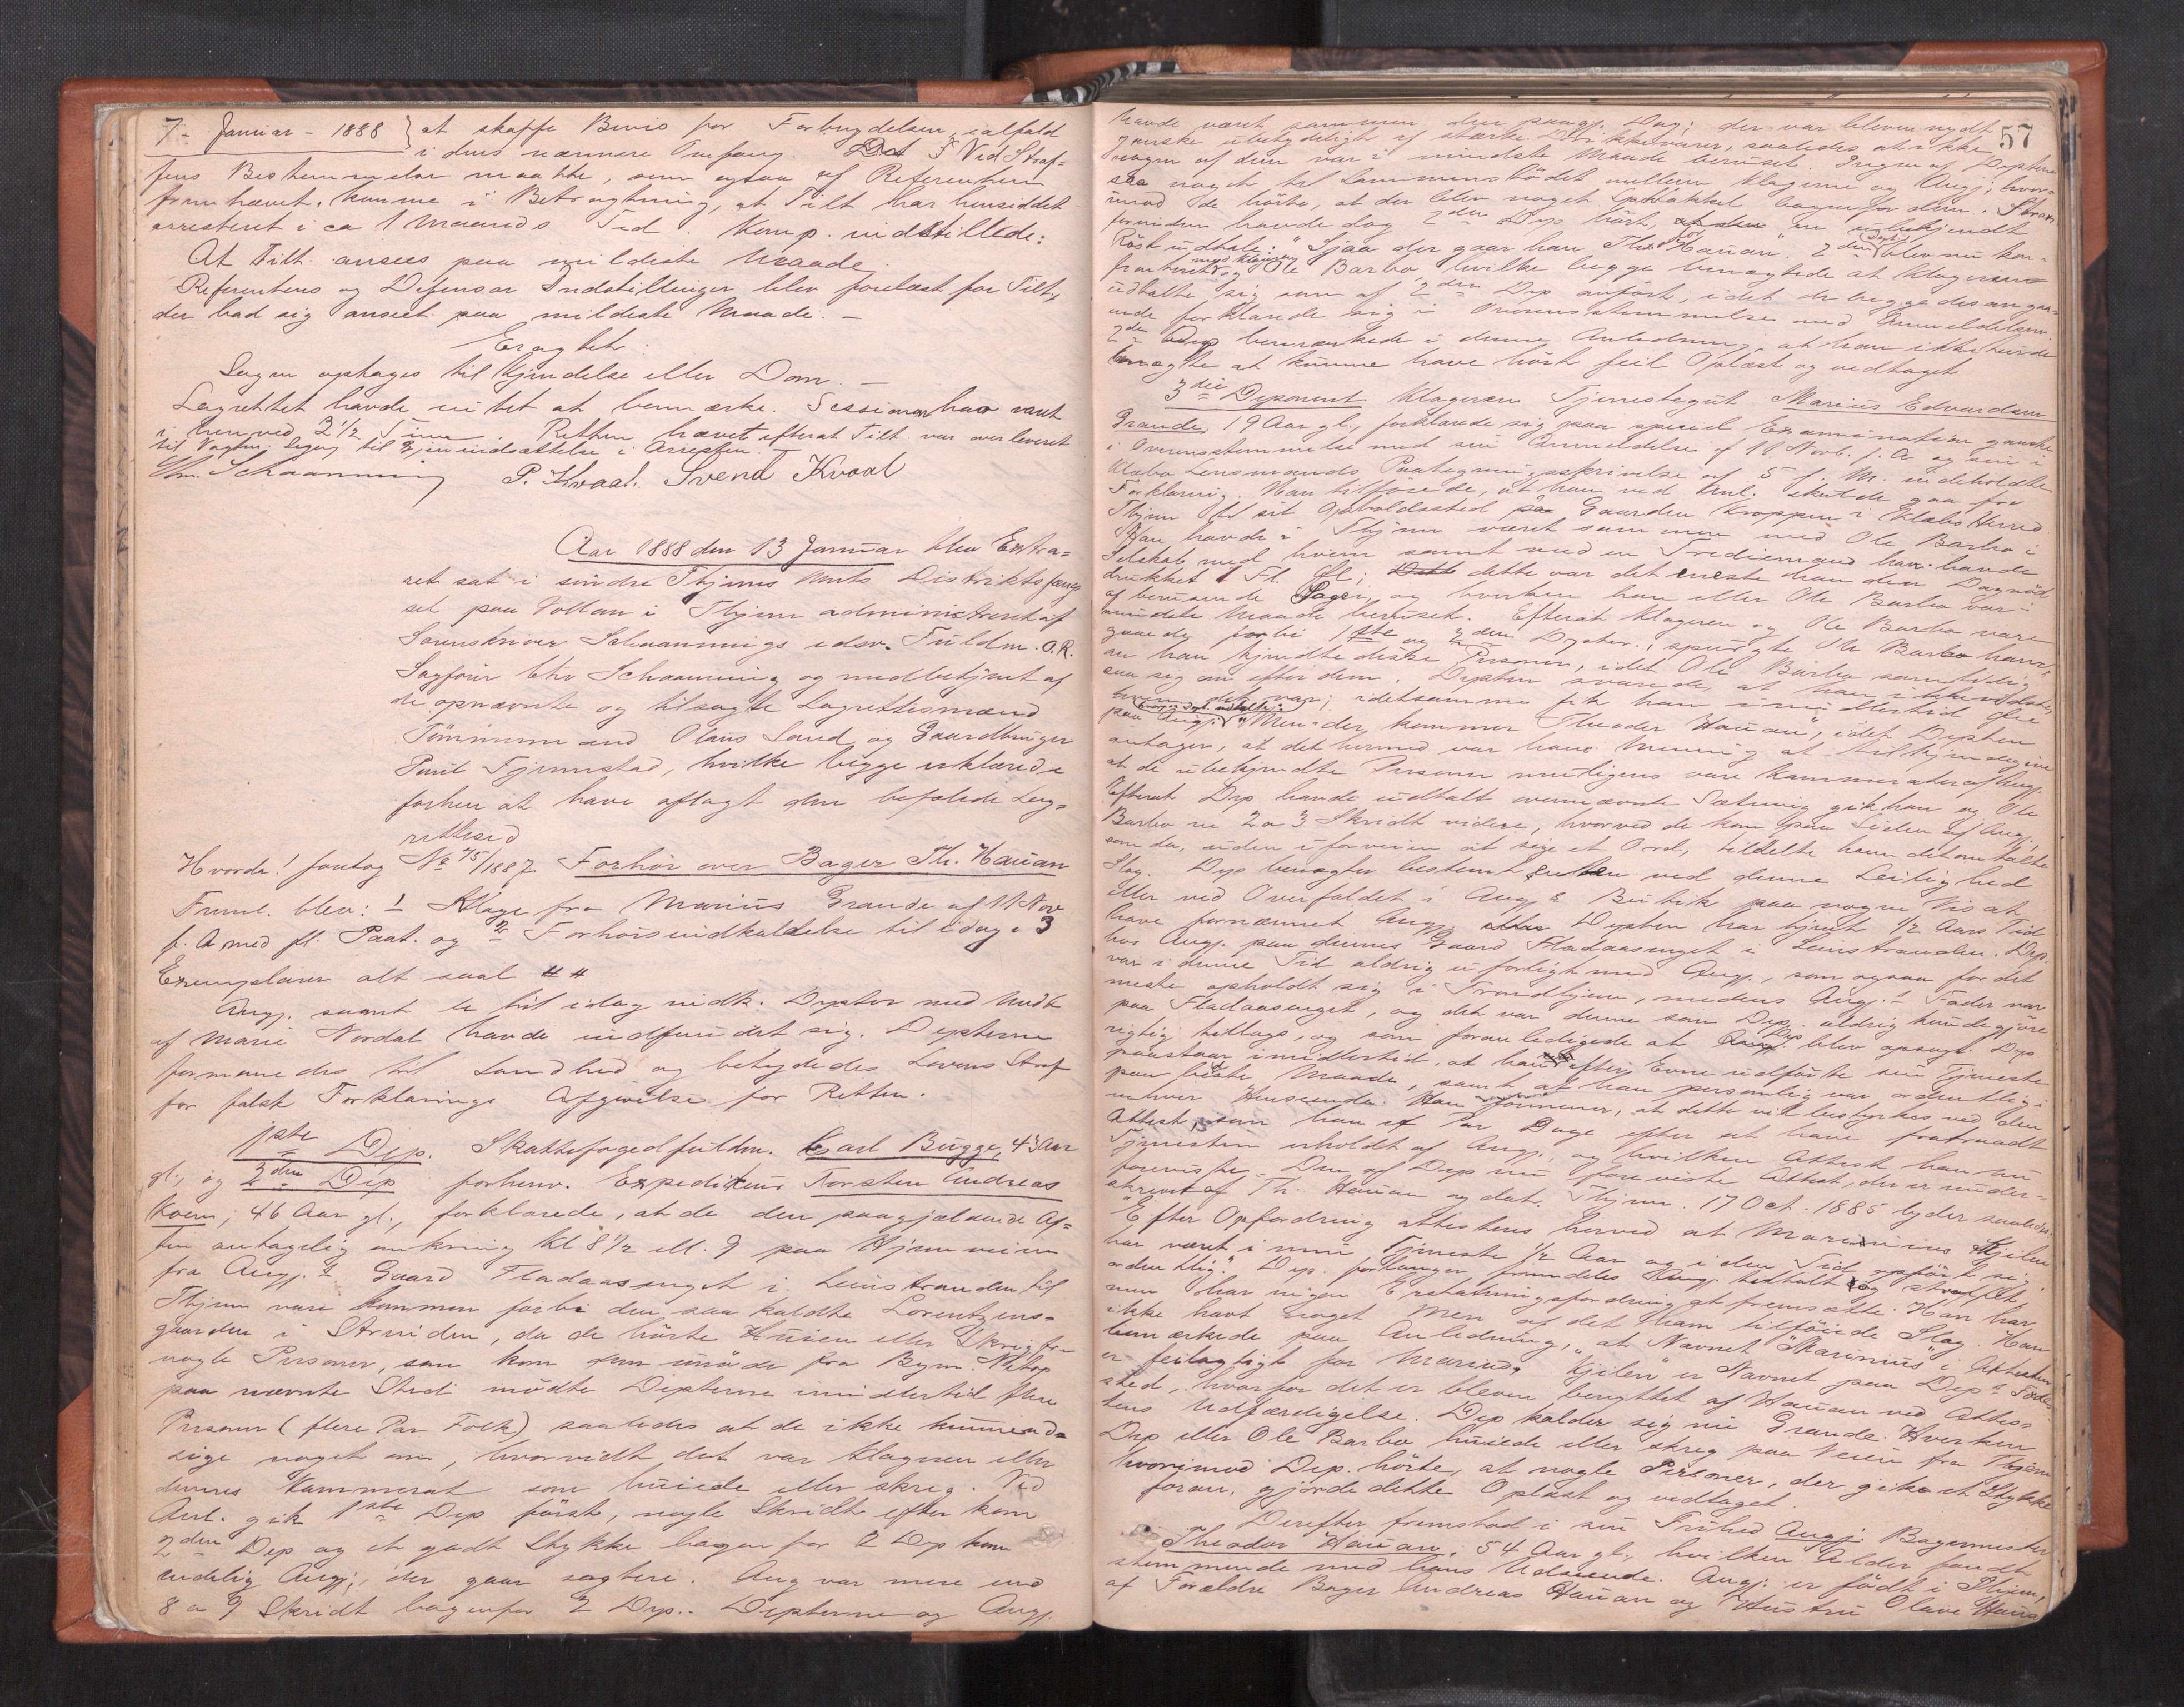 7 - Januar - 1888 } at skaffe Bevis for Forbrydelsen, ialfald
i dens nærmere Omfang. Ved Straf-
fens Bestemmelse maatte, som ogsaa af Referenten
fremhævet, komme i Betragtning, at Tilt. har hensiddet
arresteret i ca 1 Maaneds Tid. Komp. indstillede:
At Tilt. ansees paa mildeste Maade.
Referentens og Defensors Indstillinger blev forelæst for Tilt.,
der bad sig anseet paa mildeste Maade. -
Eragtet:
Sagen optages til Kjendelse eller Dom. -
Lagrettet havde intet at bemærke. Sessionen har varet
i henved 2 1/2 Time. Retten hævet efterat Tilt. var overleveret
til Vagten til Gjenindsættelse i Arresten.
Chr. Schaanning P. Kvaal. Svend Kvaal
Aar 1888 den 13 Januar blev Extra-
ret sat i søndre Thjems Amts Distriktsfæng
sel paa Vollan i Thjem administreret af
Sorenskriver Schaannings edsv. Fuldm. O.R.
Sagfører Chr Schaanning og medbetjent af
de opnævnte og tilsagte Lagrettesmænd
Tømmermand Olaus Sand og Gaardbruger
Paul Fjermstad, hvilke begge erklærede
forhen at have aflagt den befalede Lag-
rettesed
Hvorda! foretog No 75/1887 Forhør over Bager Th. Hauan
Freml. blev: 1 Klage fra Marius Grande af 11 Nov
f. A. med fl. Paat. og 2 Forhørsindkaldelse til idag i 3
Exemplarer alt saal # #
Angj. samt de hid idag indk. Depter med Undt
af Marie Nordal havde indfundet sig. Depterne
formanedes til Sandhed og betydedes Lovens Straf
for falsk Forklarings Afgivelse for Retten.
1ste Dep. Skattefogedfuldm. Carl Bugge, 43 Aar
gl., og 2den Dep forhenv. Expeditør Torsten Andreas
Koen, 46 Aar gl., forklarede, at de den paagjældende Af-
ten antagelig omkring Kl 8 1/2 ell. 9 paa Hjemveien
fra Angj.s Gaard Fladaasenget i Leinstranden til
Thjem vare kommen forbi den saakaldte Lorentzens-
gaarden i Strinden, da de hørte Huien eller Skrig fra
nogle Personer, som kom dem imøde fra Byen. Netop
paa nævnte Sted mødte Depterne imidlertid flere
Personer (flere Par Folk) saaledes at de ikke kunne ud-
sige noget om, hvorvidt det var Klageren eller
dennes Kammerat som huiede eller skreg. Ved
Anl. gik 1ste Dep først, nogle Skridt efter kom
2den Dep og et godt Stykke bagenfor 2 Dep kom
endelig Angj., der gaar sagtere. Ang var mere end
8 a 9 Skridt bagenfor 2 Dep.. Depterne og Angj.
57
havde været sammen den paagj. Dag; der var bleven nydt
ganske ubetydeligt af stærke Drikkevarer, saaledes at ikke
nogen af dem var i mindste Maade beruset. Ingen af Depterne
saa noget til Sammenstødet mellem Klageren og Angj; hvori-
mod de hørte, at der blev noget Spektakkel bagenfor dem. Strax
forinden havde dog 2den Dep hørt, en ubekjendt
Røst udtale: "Sjaa der gaar han Theodor Hauan". 2den Dep. blev nu kon-
fronteret med Klageren og Ole Barbo, hvilke begge benægtede at Klageren
udtalte sig som af 2den Dep anført, idet de begge desangaa-
ende forklarede sig i Overensstemmelse med Anmeldelsen.
2den Dep bemærkede i denne Anledning, at han ikke turde
benægte at kunne have hørt feil Oplæst og vedtaget
3die Deponent Klageren Tjenestegut Marius Edvardsen
Grande, 19 Aar gl., forklarede sig paa speciel Examination ganske
i Overensstemmelse med sin Anmeldelse af 11 Novb. f. A og sin i
Klæbo Lensmands Paategningsskrivelse af 5 f. M. indeholdte
Forklaring. Han tilføiede, at han ved Anl. skulde gaa fra
Thjem til sit Opholdssted paa Gaarden Kroppen i Klæbo Herred.
Han havde i Thjem været sammen med Ole Barbo i
Selskab med hvem samt med en Trediemand han havde
drukket 1 Fl. Øl; dette var det eneste han den Dag nød
af berusende Sager, og hverken han eller Ole Barbo var i
mindste Maade beruset. Efterat Klageren og Ole Barbo vare
gaaede forbi 1ste og 2den Depter., spurgte Ole Barbo ham,
om han kjendte disse Personer, idet Ole Barbo samtidig
saa sig om efter dem. Depten svarede, at han ikke vidste,
hvem det var; idetsamme fik han imidlertid Øie
paa Angj. hvorpaa Dep. udtalte: "Men der kommer Theodor Hauan", idet Depten
antager, at det hermed var hans Mening at tilkjendegive
at de ubekjendte Personer muligens vare Kammerater af Angj.
Efterat Dep havde udtalt ovennævnte Sætning gik han og Ole
Barbo en 2 a 3 Skridt videre, hvorved de kom paa Siden af Angj,
som da, uden i forveien at sige et Ord, tildelte ham det omtalte
Slag. Dep benægter bestemt enten ved denne Leilighed
eller ved Overfaldet i Angj.s Butik paa nogen Vis at
have fornærmet Angj. Depten har tjent 1/2 Aars Tid
hos Angj. paa dennes Gaard Fladaasenget i Leinstranden. Dep.
var i denne Tid aldrig uforligt med Angj., som ogsaa for det
meste opholdt sig i Trondhjem, medens Angj.s Fader var
paa Fladaasenget, og det var denne som Dep. aldrig kunde gjøre
rigtig tillags, og som foranledigede at Dep. blev opsagt. Dep
paastaar imidlertid, at han efter Evne udførte sin Tjeneste
paa beste Maade, samt at han personlig var ordentlig i
enhver Henseende. Han formener, at dette vil bestyrkes ved den
Attest, som han et Par Dage efter at have fratraadt
Tjenesten erholdt af Angj., og hvilken Attest han nu
foreviste. Den af Dep nu foreviste Attest, der er under-
skrevet af Th. Hauan og dat. Thjem 17 Oct. 1885 lyder saaledes:
"Efter Opfordring attesteres herved at Marinius Kjelen
har været i min Tjeneste 1/2 Aar og i den Tid opført sig
ordentlig." Dep. forlanger fremdeles Angj. tiltalt og straffet
men har ingen Erstatningsfordring at fremsætte. Han har
ikke havt noget Men af det ham tilføiede Slag. Han
bemærkede paa Anledning, at Navnet "Marinius" i Attesten
er feilagtigt for Marius, "Kjelen" er Navnet paa Dep.s Føde-
sted, hvorfor det er bleven benyttet af Hauan ved Attes-
tens Udfærdigelse. Dep kalder sig nu Grande. Hverken
Dep eller Ole Barbo huiede eller skreg paa Veien fra Thjem
hvorimod Dep. hørte, at nogle Personer, der gik et Stykke
foran, gjorde dette Oplæst og vedtaget.
Derefter fremstod i sin Frihed Angj. Bagermester
Theodor Hauan, 54 Aar gl., hvilken Alder fandt
stemmende med hans Udseende. Angj. er født i Thjem,
af Forældre Bager Andreas Hauan og Hustru Olave Haua